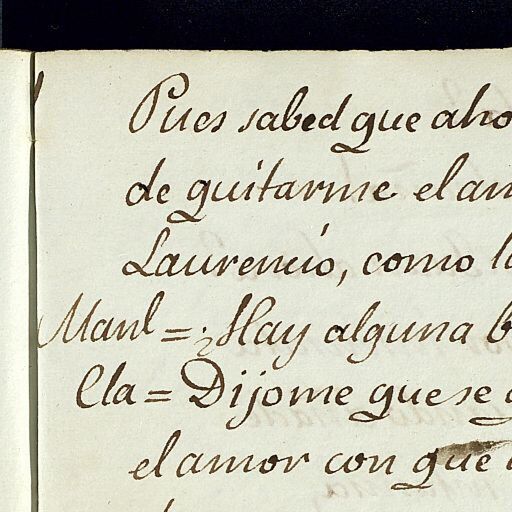 Pues sabed que aho
de quitarme el am
Laurencio, como l
Manl = ¿Hay alguna b
Cla = Díjome que se
el amor con que